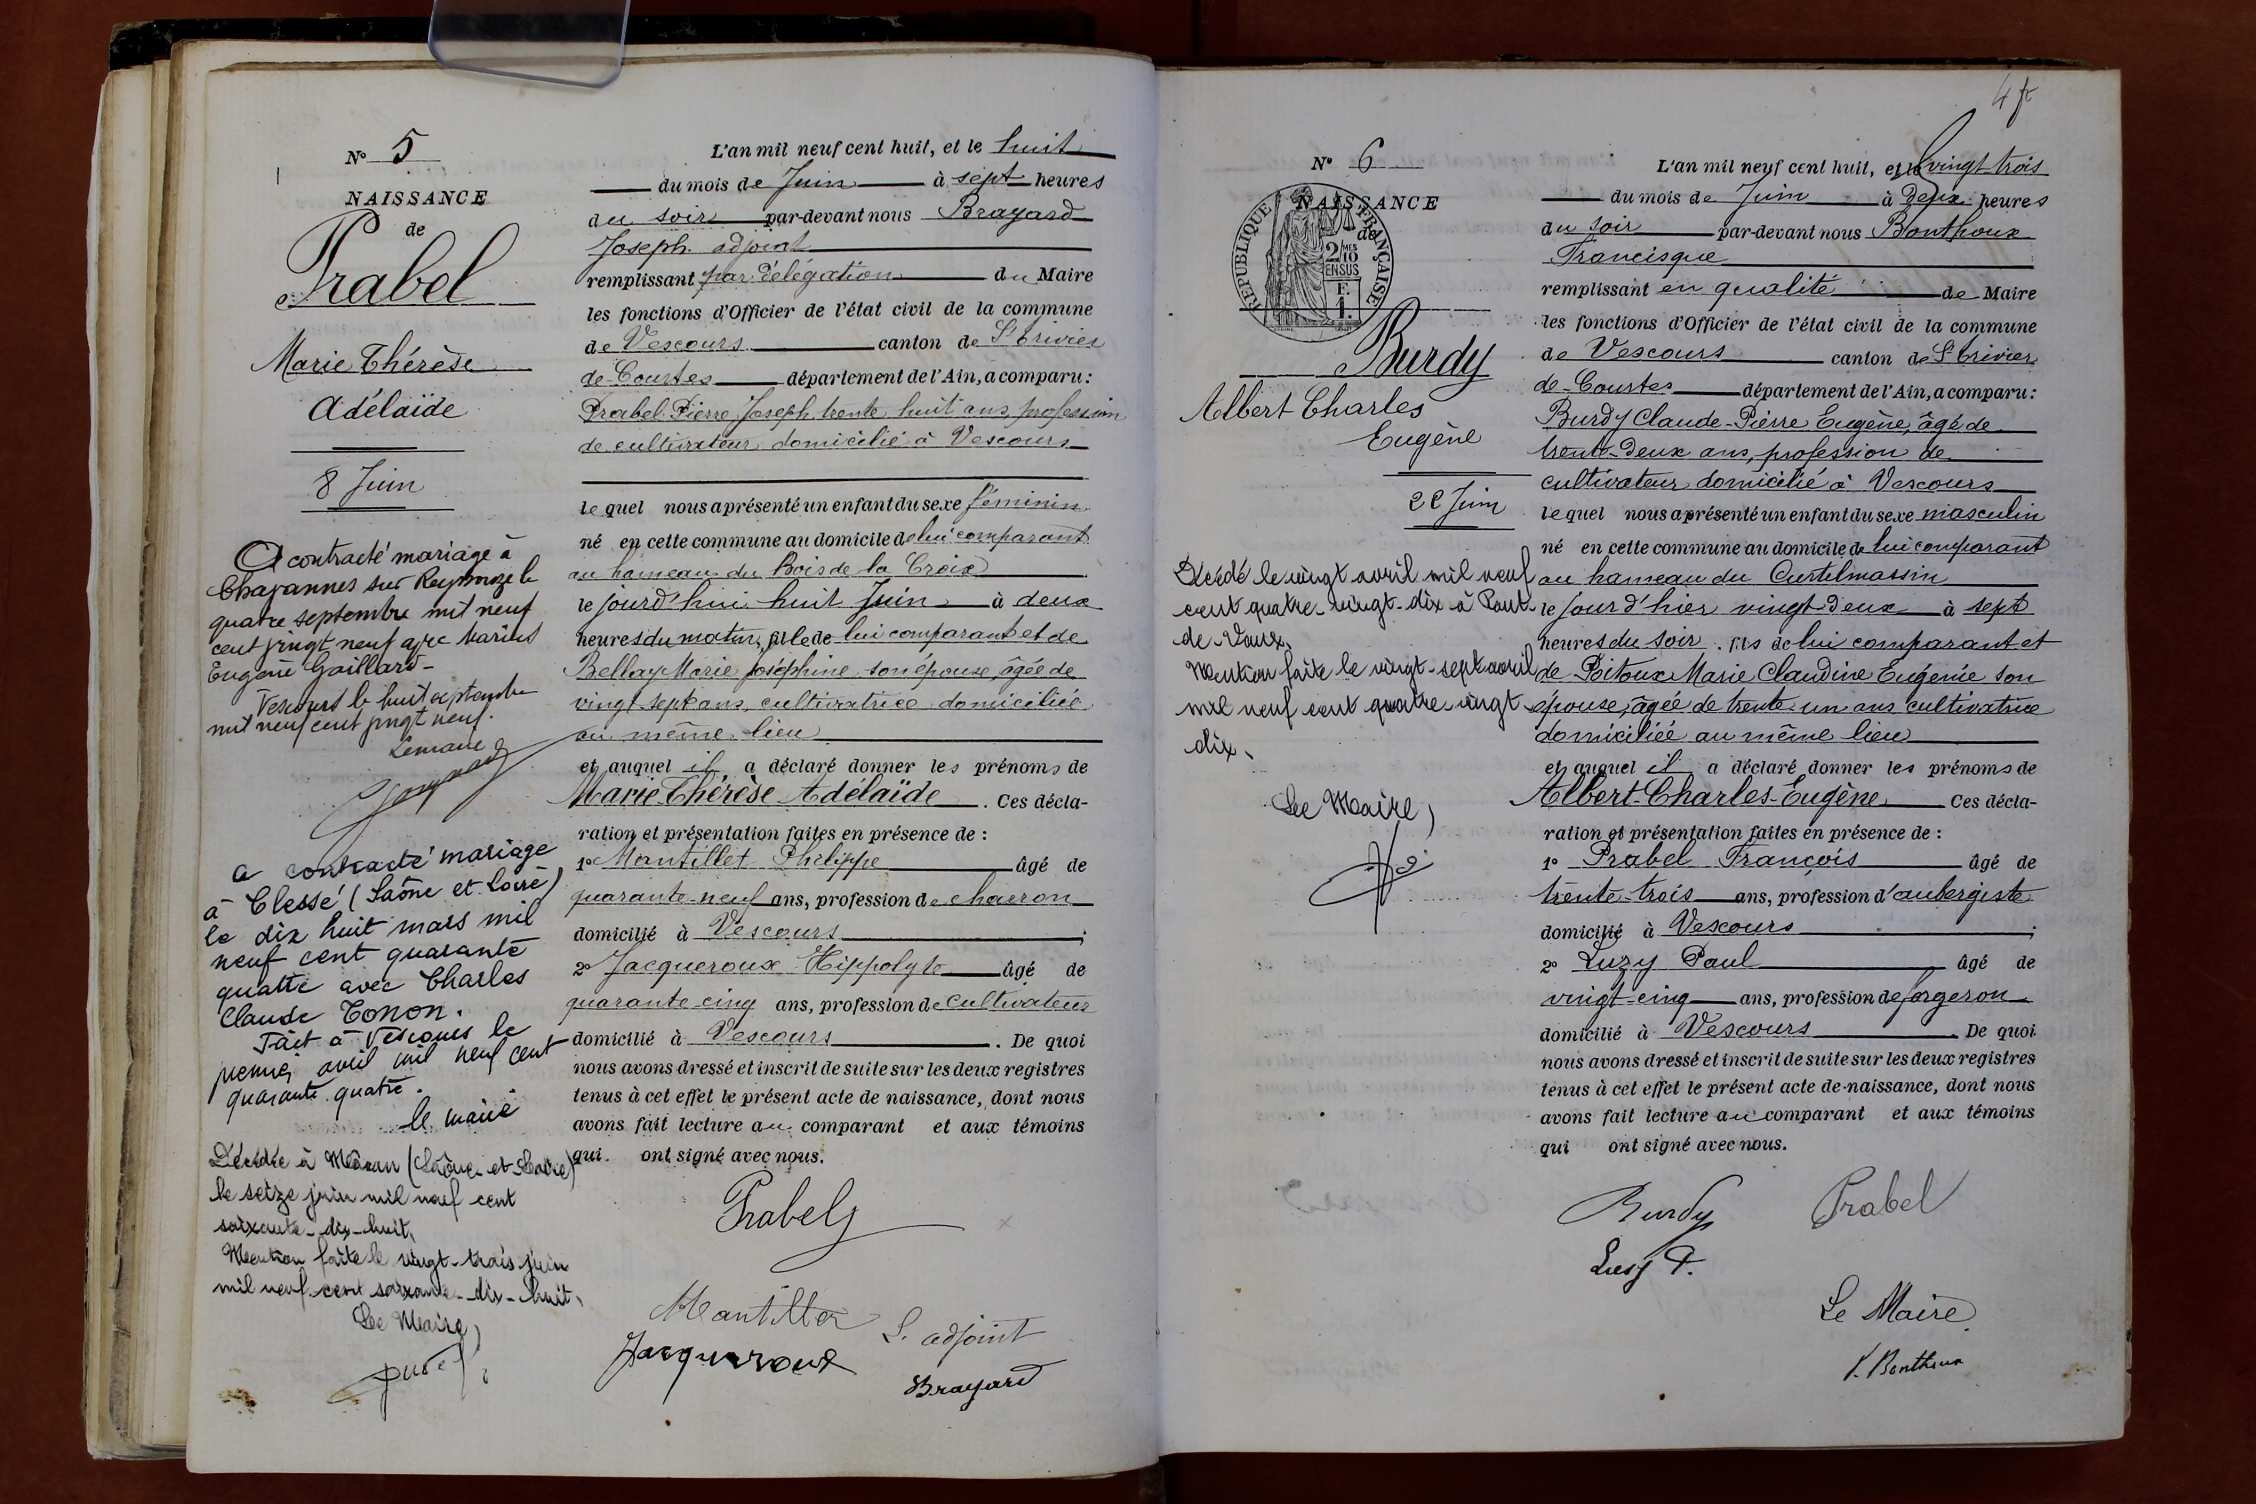 N° 5
NAISSANCE
de
Prabel
Marie Thérèse
Adélaïde
8 Juin
A contracté mariage à
Chavannes sur Reyssouze le
quatre septembre mil neuf
cent vingt neuf avec Marius
Eugène Gaillard -
Vescours le huit septembre
mil neuf cent vingt neuf.
Le maire
a contracté mariage
à Clessé (Saône et Loire)
le dix huit mars mil
neuf cent quarante
quatre avec Charles
Claude Tonon.
Fait à Vescours le
premier avril mil neuf cent
quarante quatre.
le maire
Décédée à Mâcon (Saône-et-Loire)
le seize juin mil neuf cent
soixante-dix-huit.
Mention faite le vingt-trois juin
mil neuf cent soixante-dix-huit.
Le Maire,
L'an mil neuf cent huit, et le huit
du mois de Juin à sept heures
du soir par-devant nous Brayard
Joseph adjoint
remplissant par délégation du Maire
les fonctions d'Officier de l'état civil de la commune
de Vescours canton de St Trivier
de-Courtes département de l'Ain, a comparu :
Prabel Pierre Joseph, trente huit ans, profession
de cultivateur domicilié à Vescours
lequel nous a présenté un enfant du sexe féminin
né en cette commune au domicile de lui comparant
au hameau du Bois de la Croix
le jourd'hui huit Juin à deux
heures du matin, fille de lui comparant et de
Bellay Marie Joséphine son épouse âgée de
vingt-sept ans, cultivatrice domiciliée
au même lieu
et auquel il a déclaré donner les prénoms de
Marie Thérèse Adélaïde . Ces décla-
ration et présentation faites en présence de :
1° Mantillet Philippe âgé de
quarante-neuf ans, profession de charron
domicilié à Vescours ;
2° Jacqueroux Hippolyte âgé de
quarante-cinq ans, profession de cultivateur
domicilié à Vescours . De quoi
nous avons dressé et inscrit de suite sur les deux registres
tenus à cet effet le présent acte de naissance, dont nous
avons fait lecture au comparant et aux témoins
qui ont signé avec nous.
Prabel
Mantillet
L. adjoint
Jacqueroux
Brayard
4 ft
N° 6
NAISSANCE
de
REPUBLIQUE FRANÇAISE
2/10 MES
EN SUS
F.
1.
Burdy
Albert Charles
Eugène
22 Juin
Décédé le vingt avril mil neuf
cent quatre-vingt-dix à Pont-
de-Vaux.
Mention faite le vingt-sept avril
mil neuf cent quatre vingt
dix.
Le Maire,
L'an mil neuf cent huit, et le vingt trois
du mois de Juin à Deux heures
du soir par-devant nous Bonthoux
Francisque
remplissant en qualité de Maire
les fonctions d'Officier de l'état civil de la commune
de Vescours canton de St Trivier
de-Courtes département de l'Ain, a comparu :
Burdy Claude-Pierre Eugène, âgé de
trente-deux ans, profession de
cultivateur domicilié à Vescours
lequel nous a présenté un enfant du sexe masculin
né en cette commune au domicile de lui comparant
au hameau du Curtelmassin
le jour d'hier vingt-deux à sept
heures du soir . fils de lui comparant et
de Pitoux Marie Claudine Eugénie son
épouse, âgée de trente-un ans cultivatrice
domiciliée au même lieu
et auquel il a déclaré donner les prénoms de
Albert-Charles-Eugène Ces décla-
ration et présentation faites en présence de :
1° Prabel François âgé de
trente-trois ans, profession d'aubergiste
domicilié à Vescours ;
2° Luzy Paul âgé de
vingt-cinq ans, profession de forgeron
domicilié à Vescours . De quoi
nous avons dressé et inscrit de suite sur les deux registres
tenus à cet effet le présent acte de naissance, dont nous
avons fait lecture au comparant et aux témoins
qui ont signé avec nous.
Burdy
Prabel
Luzy P.
Le Maire
F. Bonthoux